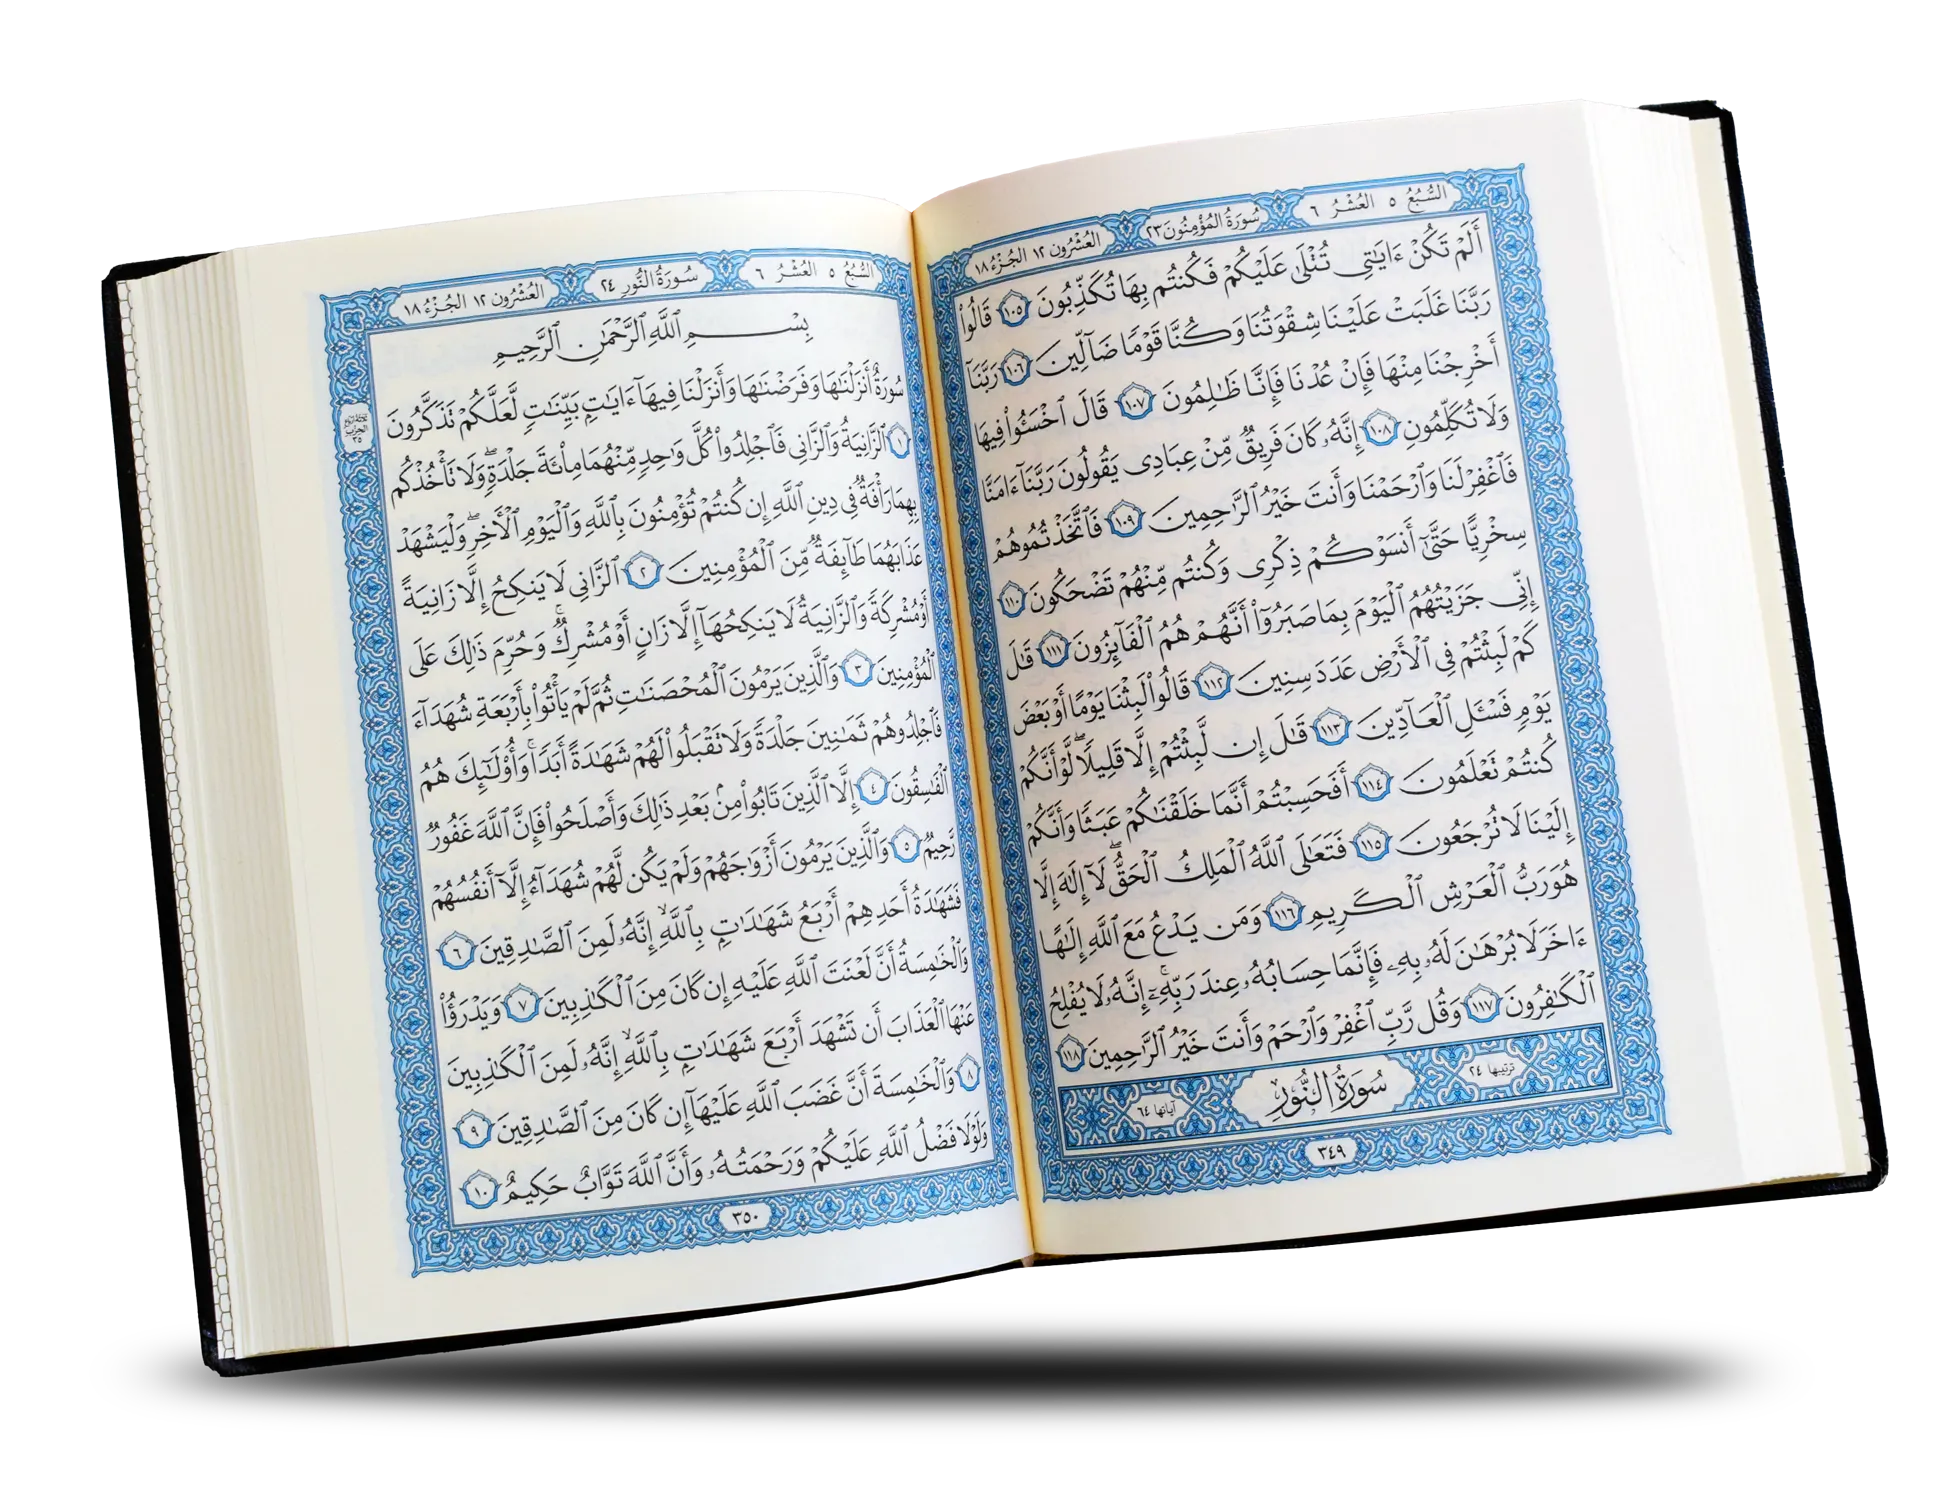 السُّبُعُ ٥ العُشْرُ ٦ سُورَةُ المُؤْمِنُونَ ٢٣ العُشْرُون ١٢ الجُزْءُ ١٨
أَلَمْ تَكُنْ ءَايَٰتِى تُتْلَىٰ عَلَيْكُمْ فَكُنتُم بِهَا تُكَذِّبُونَ ١٠٥ قَالُوا۟
رَبَّنَا غَلَبَتْ عَلَيْنَا شِقْوَتُنَا وَكُنَّا قَوْمًا ضَآلِّينَ ١٠٦ رَبَّنَآ
أَخْرِجْنَا مِنْهَا فَإِنْ عُدْنَا فَإِنَّا ظَٰلِمُونَ ١٠٧ قَالَ ٱخْسَـُٔوا۟ فِيهَا
وَلَا تُكَلِّمُونِ ١٠٨ إِنَّهُۥ كَانَ فَرِيقٌ مِّنْ عِبَادِى يَقُولُونَ رَبَّنَآ ءَامَنَّا
فَٱغْفِرْ لَنَا وَٱرْحَمْنَا وَأَنتَ خَيْرُ ٱلرَّٰحِمِينَ ١٠٩ فَٱتَّخَذْتُمُوهُمْ
سِخْرِيًّا حَتَّىٰٓ أَنسَوْكُمْ ذِكْرِى وَكُنتُم مِّنْهُمْ تَضْحَكُونَ ١١٠
إِنِّى جَزَيْتُهُمُ ٱلْيَوْمَ بِمَا صَبَرُوٓا۟ أَنَّهُمْ هُمُ ٱلْفَآئِزُونَ ١١١ قَٰلَ
كَمْ لَبِثْتُمْ فِى ٱلْأَرْضِ عَدَدَ سِنِينَ ١١٢ قَالُوا۟ لَبِثْنَا يَوْمًا أَوْ بَعْضَ
يَوْمٍ فَسْـَٔلِ ٱلْعَآدِّينَ ١١٣ قَٰلَ إِن لَّبِثْتُمْ إِلَّا قَلِيلًا ۖ لَّوْ أَنَّكُمْ
كُنتُمْ تَعْلَمُونَ ١١٤ أَفَحَسِبْتُمْ أَنَّمَا خَلَقْنَٰكُمْ عَبَثًا وَأَنَّكُمْ
إِلَيْنَا لَا تُرْجَعُونَ ١١٥ فَتَعَٰلَى ٱللَّهُ ٱلْمَلِكُ ٱلْحَقُّ ۖ لَآ إِلَٰهَ إِلَّا
هُوَ رَبُّ ٱلْعَرْشِ ٱلْكَرِيمِ ١١٦ وَمَن يَدْعُ مَعَ ٱللَّهِ إِلَٰهًا
ءَاخَرَ لَا بُرْهَٰنَ لَهُۥ بِهِۦ فَإِنَّمَا حِسَابُهُۥ عِندَ رَبِّهِۦٓ ۚ إِنَّهُۥ لَا يُفْلِحُ
ٱلْكَٰفِرُونَ ١١٧ وَقُل رَّبِّ ٱغْفِرْ وَٱرْحَمْ وَأَنتَ خَيْرُ ٱلرَّٰحِمِينَ ١١٨
ترتيبها ٢٤ سُورَةُ النُّورِ آياتها ٦٤
٣٤٩
السُّبُعُ ٥ العُشْرُ ٦ سُورَةُ النُّورِ ٢٤ العُشْرُون ١٢ الجُزْءُ ١٨
بِسْمِ ٱللَّهِ ٱلرَّحْمَٰنِ ٱلرَّحِيمِ
سُورَةٌ أَنزَلْنَٰهَا وَفَرَضْنَٰهَا وَأَنزَلْنَا فِيهَآ ءَايَٰتٍۭ بَيِّنَٰتٍ لَّعَلَّكُمْ تَذَكَّرُونَ
١ ٱلزَّانِيَةُ وَٱلزَّانِى فَٱجْلِدُوا۟ كُلَّ وَٰحِدٍ مِّنْهُمَا مِا۟ئَةَ جَلْدَةٍ ۖ وَلَا تَأْخُذْكُم
بِهِمَا رَأْفَةٌ فِى دِينِ ٱللَّهِ إِن كُنتُمْ تُؤْمِنُونَ بِٱللَّهِ وَٱلْيَوْمِ ٱلْءَاخِرِ ۖ وَلْيَشْهَدْ
عَذَابَهُمَا طَآئِفَةٌ مِّنَ ٱلْمُؤْمِنِينَ ٢ ٱلزَّانِى لَا يَنكِحُ إِلَّا زَانِيَةً
أَوْ مُشْرِكَةً وَٱلزَّانِيَةُ لَا يَنكِحُهَآ إِلَّا زَانٍ أَوْ مُشْرِكٌ ۚ وَحُرِّمَ ذَٰلِكَ عَلَى
ٱلْمُؤْمِنِينَ ٣ وَٱلَّذِينَ يَرْمُونَ ٱلْمُحْصَنَٰتِ ثُمَّ لَمْ يَأْتُوا۟ بِأَرْبَعَةِ شُهَدَآءَ
فَٱجْلِدُوهُمْ ثَمَٰنِينَ جَلْدَةً وَلَا تَقْبَلُوا۟ لَهُمْ شَهَٰدَةً أَبَدًا ۚ وَأُو۟لَٰٓئِكَ هُمُ
ٱلْفَٰسِقُونَ ٤ إِلَّا ٱلَّذِينَ تَابُوا۟ مِنۢ بَعْدِ ذَٰلِكَ وَأَصْلَحُوا۟ فَإِنَّ ٱللَّهَ غَفُورٌ
رَّحِيمٌ ٥ وَٱلَّذِينَ يَرْمُونَ أَزْوَٰجَهُمْ وَلَمْ يَكُن لَّهُمْ شُهَدَآءُ إِلَّآ أَنفُسُهُمْ
فَشَهَٰدَةُ أَحَدِهِمْ أَرْبَعُ شَهَٰدَٰتٍۭ بِٱللَّهِ ۙ إِنَّهُۥ لَمِنَ ٱلصَّٰدِقِينَ ٦
وَٱلْخَٰمِسَةُ أَنَّ لَعْنَتَ ٱللَّهِ عَلَيْهِ إِن كَانَ مِنَ ٱلْكَٰذِبِينَ ٧ وَيَدْرَؤُا۟
عَنْهَا ٱلْعَذَابَ أَن تَشْهَدَ أَرْبَعَ شَهَٰدَٰتٍۭ بِٱللَّهِ ۙ إِنَّهُۥ لَمِنَ ٱلْكَٰذِبِينَ
٨ وَٱلْخَٰمِسَةَ أَنَّ غَضَبَ ٱللَّهِ عَلَيْهَآ إِن كَانَ مِنَ ٱلصَّٰدِقِينَ ٩
وَلَوْلَا فَضْلُ ٱللَّهِ عَلَيْكُمْ وَرَحْمَتُهُۥ وَأَنَّ ٱللَّهَ تَوَّابٌ حَكِيمٌ ١٠
٣٥٠